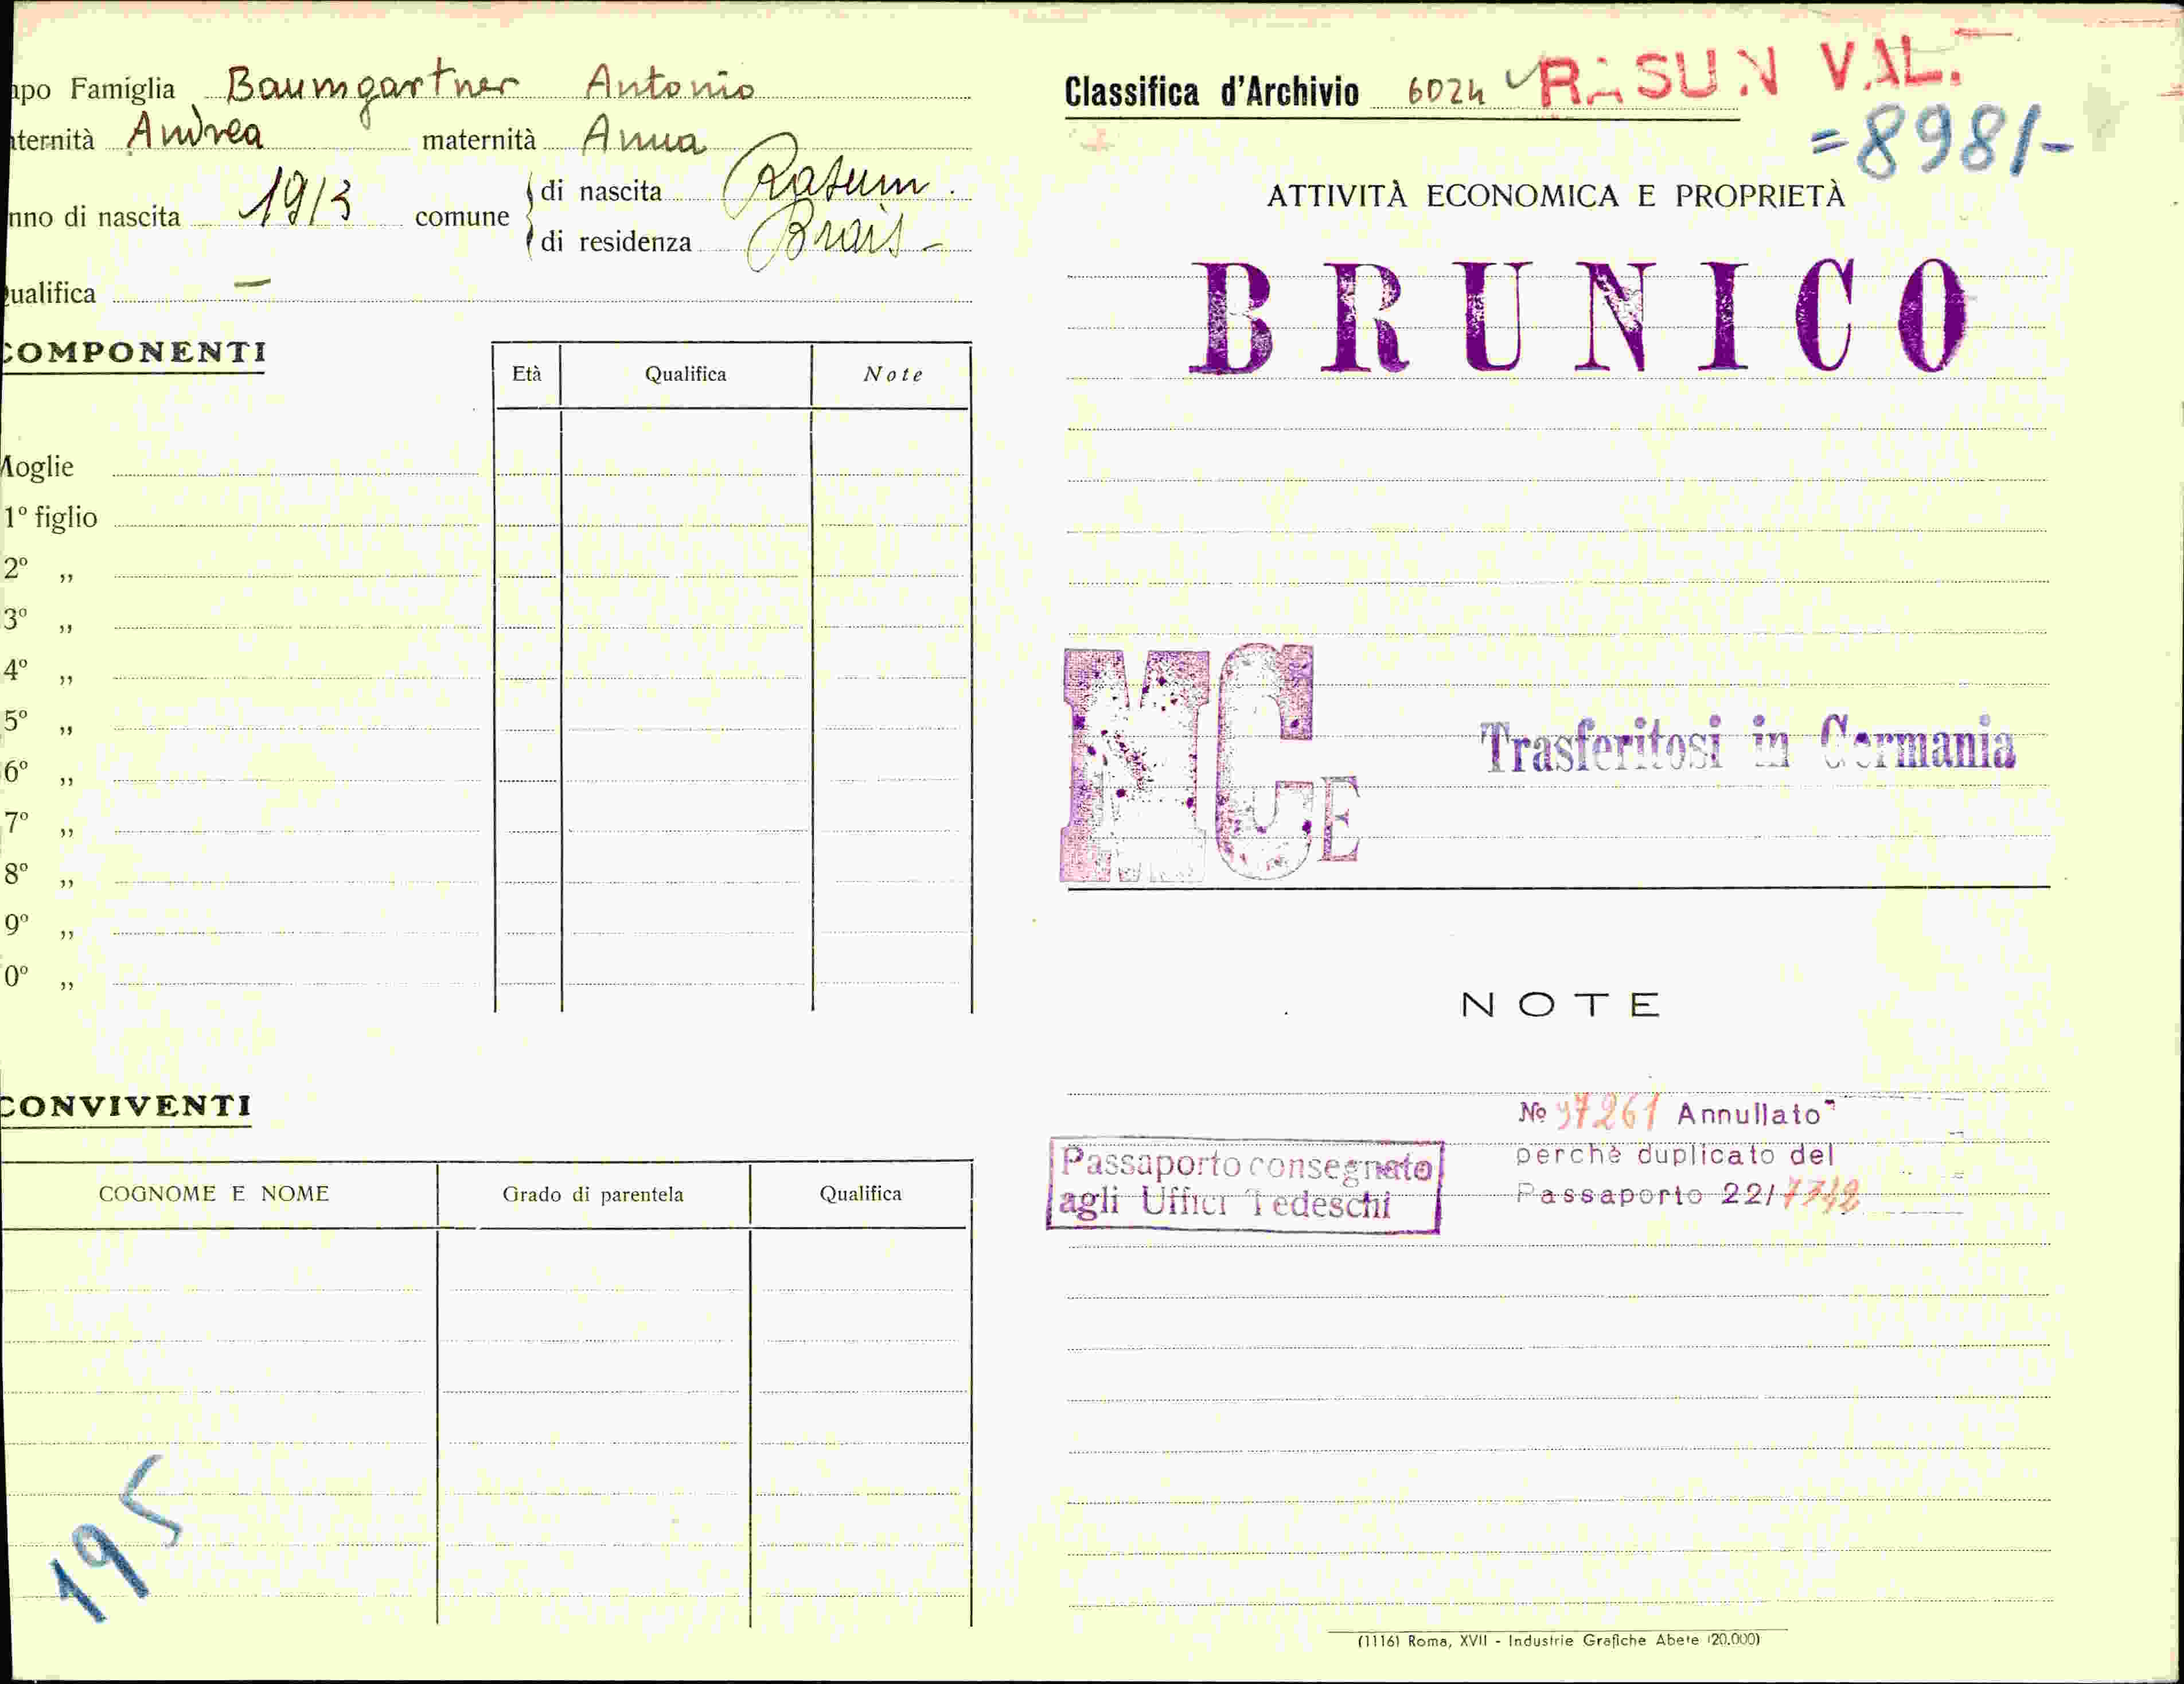 apo Famiglia Baumgartner Antonio
aternità Andrea maternità Anna
nno di nascita 1913 comune di nascita Rasum.
di residenza Brais -
Qualifica —
COMPONENTI
Età Qualifica Note
Moglie
1º figlio
2º „
3º „
4º „
5º „
6º „
7º „
8º „
9º „
0º „
CONVIVENTI
COGNOME E NOME Grado di parentela Qualifica
195
Classifica d'Archivio 6024 RASUN VAL.
=8981-
ATTIVITÀ ECONOMICA E PROPRIETÀ
BRUNICO
MCE
Trasferitosi in Germania
NOTE
Nº 97261 Annullato
perchè duplicato del
Passaporto 22/7348
Passaporto consegnato
agli Uffici Tedeschi
(1116) Roma, XVII - Industrie Grafiche Abete (20.000)